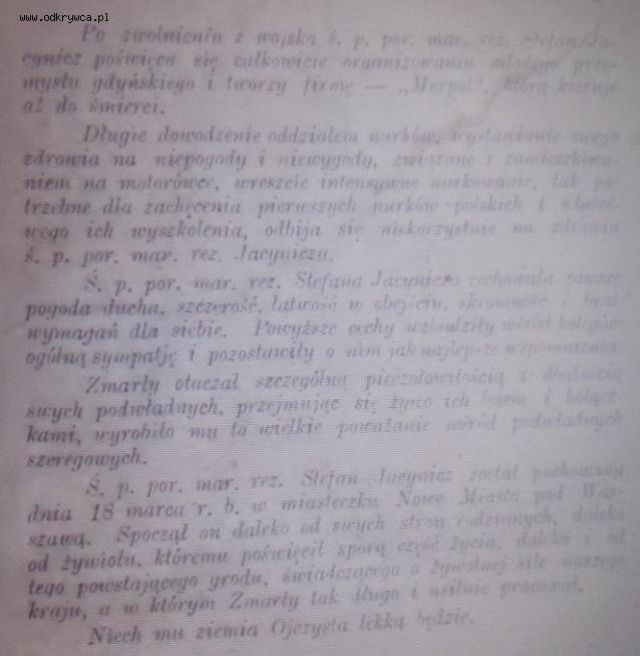 www.odkrywca.pl
Po zwolnieniu z wojska ś. p. por. mar. rez. Stefan Ja-
cynicz poświęca się całkowicie organizowaniu młodego prze-
mysłu gdyńskiego i tworzy firmę — „Morpol“, którą kieruje
aż do śmierci.
Długie dowodzenie oddziałem nurków, wystawianie swego
zdrowia na niepogody i niewygody, związane z zamieszkiwa-
niem na motorówce, wreszcie intensywne nurkowanie, tak po-
trzebne dla zachęcenia pierwszych nurków polskich i właści-
wego ich wyszkolenia, odbija się niekorzystnie na zdrowiu
ś. p. por. mar. rez. Jacynicza.
Ś. p. por. mar. rez. Stefana Jacynicza cechowała zawsze
pogoda ducha, szczerość, łatwość w obejściu, skromność i brak
wymagań dla siebie. Powyższe cechy wzbudziły wśród kolegów
ogólną sympatję i pozostawiły o nim jak najlepsze wspomnienia.
Zmarły otaczał szczególną pieczołowitością i dbałością
swych podwładnych, przejmując się żywo ich losem i bolącz-
kami, wyrobiło mu to wielkie poważanie wśród podwładnych
szeregowych.
Ś. p. por. mar. rez. Stefan Jacynicz został pochowany
dnia 18 marca r. b. w miasteczku Nowe Miasto pod War-
szawą. Spoczął on daleko od swych stron rodzinnych, daleko
od żywiołu, któremu poświęcił sporą część życia, daleko i od
tego powstającego grodu, świadczącego o żywotnej sile naszego
kraju, a w którym Zmarły tak długo i usilnie pracował.
Niech mu ziemia Ojczysta lekką będzie.